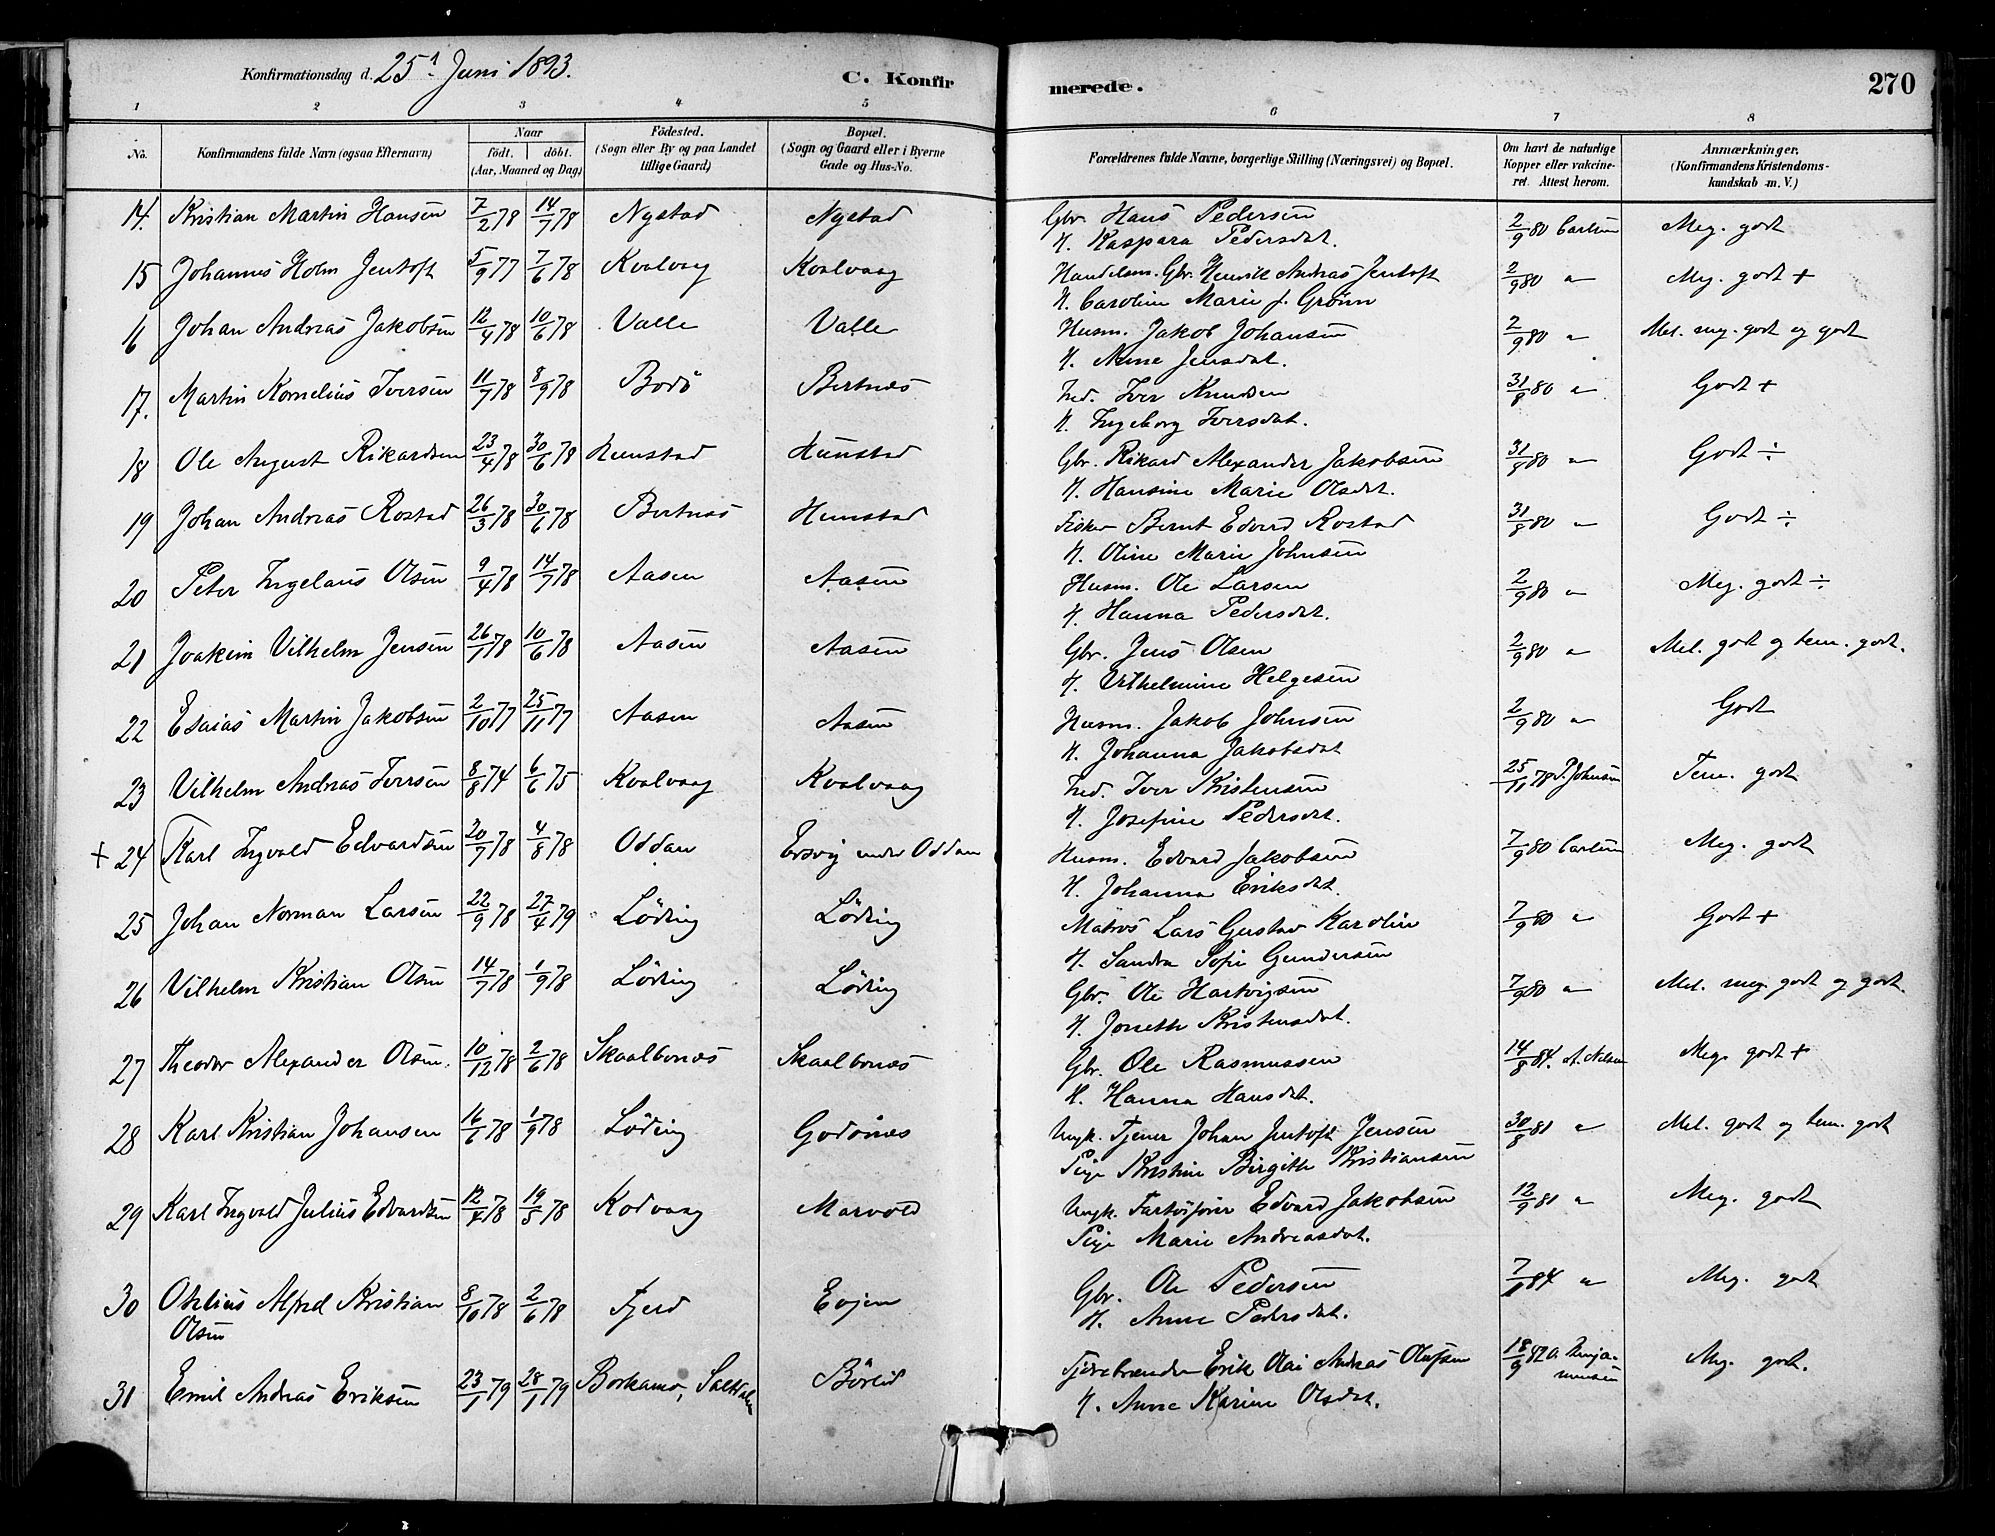 Konfirmationsdag d. 25d Juni 1893. C. Konfirmerede. 270
1 2 3 4 5 6 7 8
No. Konfirmandens fulde Navn (ogsaa Efternavn) Naar födt. döbt. (Aar, Maaned og Dag) Födested. (Sogn eller By og paa Landet tillige Gaard) Bopæl. (Sogn og Gaard eller i Byerne Gade og Hus-No. Forældrenes fulde Navne, borgerlige Stilling (Næringsvei) og Bopæl. Om havt de naturlige Kopper eller vakcineret. Attest herom. Anmærkninger. (Konfirmandens Kristendomskundskab m. V.)
14. Kristian Martin Hansen 7/2 78 14/7 78 Nystad Nystad Gbr. Hans Pedersen 2/9 80 Carlsen Meg. godt
H. Kaspara Pedersdat.
15 Johannes Holm Jentoft 5/9 77 7/6 78 Kvalvaag Kvalvaag Handelsm. Gbr. Henrik Andreas Jentoft 2/9 80 " Meg. godt +
H. Caroline Marie f. Grönn
16 Johan Andreas Jakobsen 12/4 78 10/6 78 Valle Valle Husm. Jakob Johansen 2/9 80 " Mel. meg. godt og godt
H. Anne Jensdat.
17. Martin Kornelius Iversen 11/7 78 8/9 78 Bodö Bertnes Ind. Iver Knudsen 31/8 80 " Godt +
H. Ingeborg Iversdat.
18 Ole August Rikardsen 23/4 78 30/6 78 Hunstad Hunstad Gbr. Rikard Alexander Jakobsen 31/8 80 " Godt ÷
H. Hansine Marie Olsdat.
19 Johan Andreas Rostad 26/3 78 30/6 78 Bertnes Hunstad Fisker Bernt Edvard Rostad 31/8 80 " Godt ÷
H. Oline Marie Johnsen
20 Peter Ingelaus Olsen 9/4 78 14/7 78 Aasen Aasen Husm. Ole Larsen 2/9 80 " Meg. godt ÷
H. Hanna Pedersdat.
21 Joakim Vilhelm Jensen 26/1 78 10/6 78 Aasen Aasen Gbr. Jens Olsen 2/9 80 " Mel. godt og tem. godt.
H. Vilhelmine Helgesen
22 Esaias Martin Jakobsen 2/10 77 25/11 77 Aasen Aasen Husm. Jakob Johnsen 2/9 80 " Godt
H. Johanna Jakobsdat
23 Vilhelm Andreas Iversen 8/8 74 6/6 75 Kvalvaag Kvalvaag Ind. Iver Kristensen 25/11 78 P. Johnsen Tem. godt
H. Josefine Pedersdat.
+ 24 Karl Ingvald Edvardsen 20/7 78 4/8 78 Oddan Ersvig under Oddan Husm. Edvard Jakobsen 7/9 80 Carlsen Meg. godt
H. Johanna Eriksdat.
25 Johan Norman Larsen 22/9 78 27/4 79 Löding Löding Matros Lars Gustav Karolin 7/9 80 " Godt +
H. Sandra Sofie Gundersen
26 Vilhelm Kristian Olsen 14/7 78 1/9 78 Löding Löding Gbr. Ole Hartvigsen 7/9 80 " Mel. meg. godt og godt.
H. Joneth Kristensdat.
27 Theodor Alexander Olsen. 10/12 78 2/6 78 Skaalbones Skaalbones Gbr. Ole Rasmussen 14/8 84. A. Nilsen Meg. godt +
H. Hanna Hansdat.
28 Karl Kristian Johansen 16/6 78 1/9 78 Löding Godönes Ungk. Tjener Johan Jentoft Jensen 30/8 81 " Mel. godt og tem. godt
Pige Kristine Birgithe Kristiansen
29 Karl Ingvald Julius Edvardsen 12/4 78 19/5 78 Kodvaag Marvold Ungk. Edvard Jakobsen 12/9 81 " Meg. godt
Pige Marie Andreasdat.
30 Otelius Alfred Kristian 8/10 78 2/6 78 Fjerd Evjen Gbr. Ole Pedersen 7/8 84 " Meg. godt
Olsen H. Anne Pedersdat.
31 Emil Andreas Eriksen 23/1 79 28/1 79 Borkamo, Saltdalen Börlid Tjærebrænder Erik Olai Andreas Olufsen 18/9 82 Benjaminsen Meg. godt.
H. Anne Karine Olsdat.